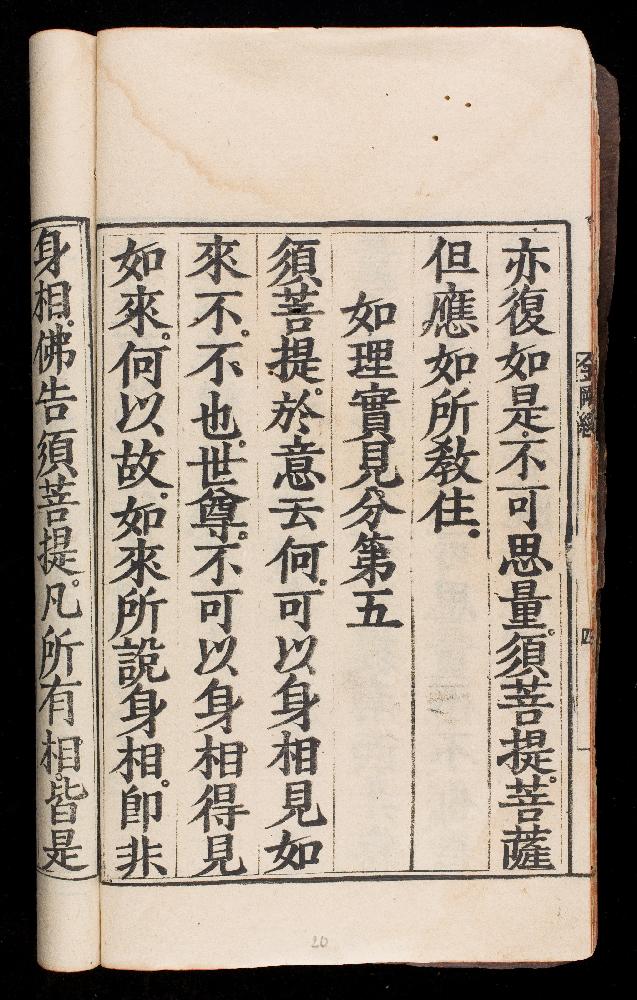 金剛經
四
亦復如是。不可思量。須菩提。菩薩
但應如所教住。
如理實見分第五
須菩提。於意云何。可以身相見如
來不。不也。世尊。不可以身相得見
如來。何以故。如來所說身相。即非
身相。佛告須菩提。凡所有相。皆是
20